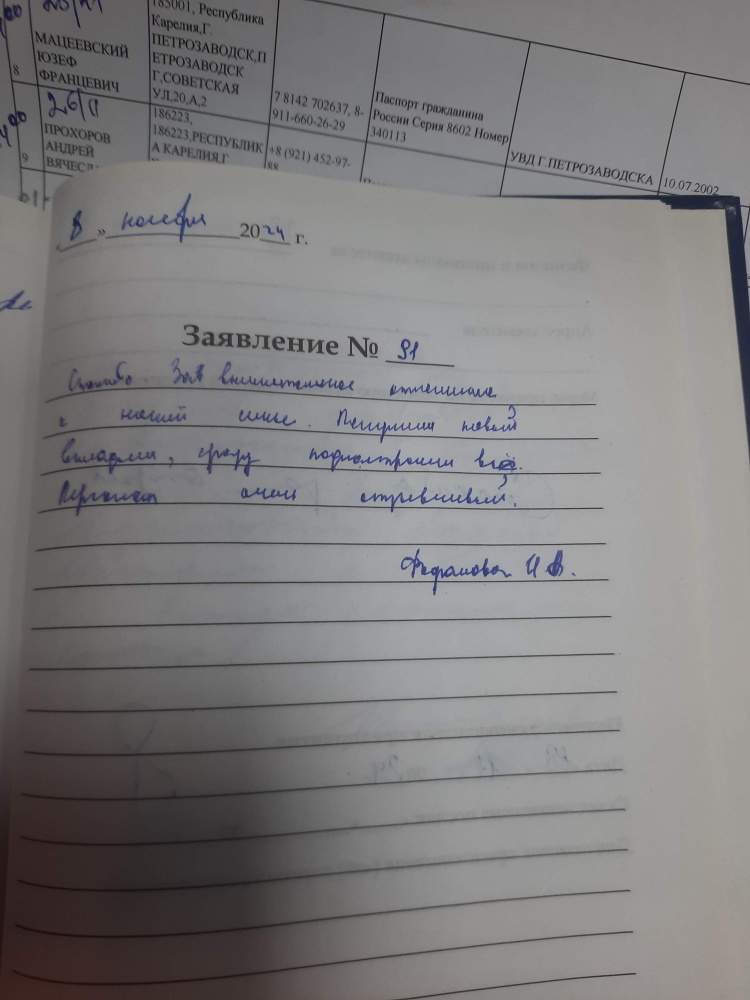 8
МАЦЕЕВСКИЙ
ЮЗЕФ
ФРАНЦЕВИЧ
185001, Республика
Карелия,Г.
ПЕТРОЗАВОДСК,П
ЕТРОЗАВОДСК
Г,СОВЕТСКАЯ
УЛ,20,А,2
7 8142 702637, 8-
911-660-26-29
Паспорт гражданина
России Серия 8602 Номер
340113
УВД Г.ПЕТРОЗАВОДСКА
10.07.2002
9
ПРОХОРОВ
АНДРЕЙ
186223,
186223,РЕСПУБЛИК
А КАРЕЛИЯ,Г
+8 (921) 452-97-
88
8 » ноября 2024 г.
Заявление № 91
Спасибо. За внимательное отношение
к нашей . новый
вкладыш, сразу всё.
очень отзывчивый.
И.В.